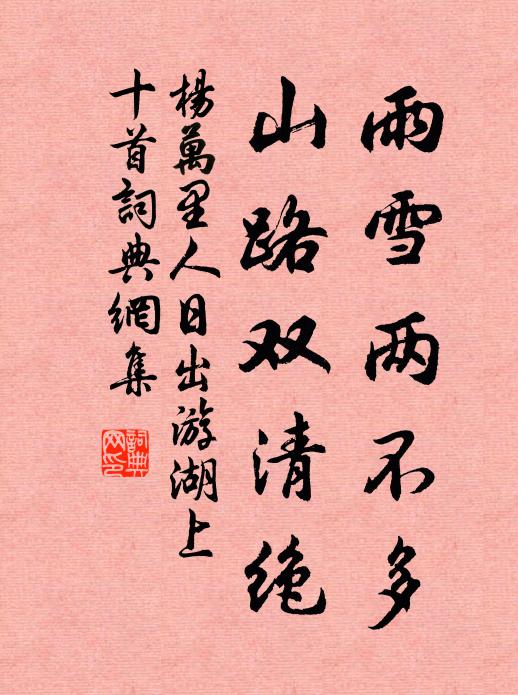 雨雪两不多
山路双清绝
楊萬里人日出游湖上
十首詞典網集
詞典
网印